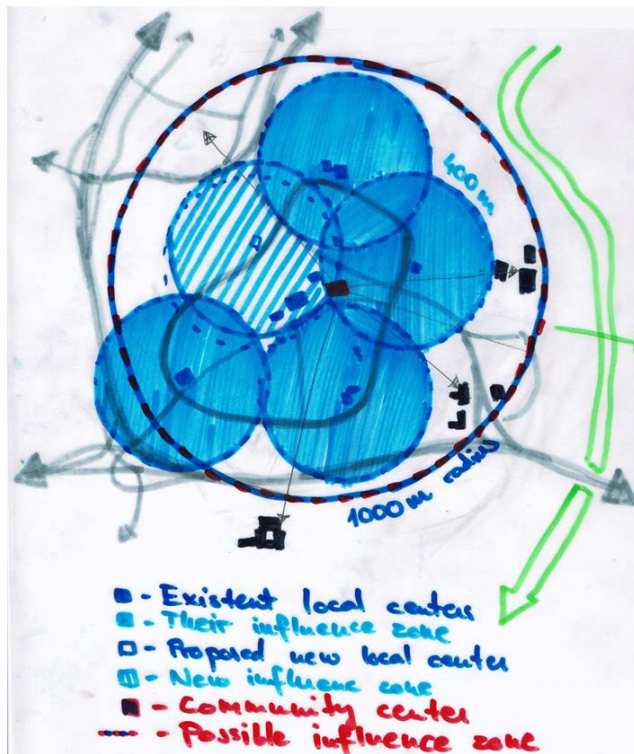 400 m
1000 m radius
- Existent local centers
- Their influence zone
- Proposed new local center
- New influenc zone
- Community center
- Possible influence zone